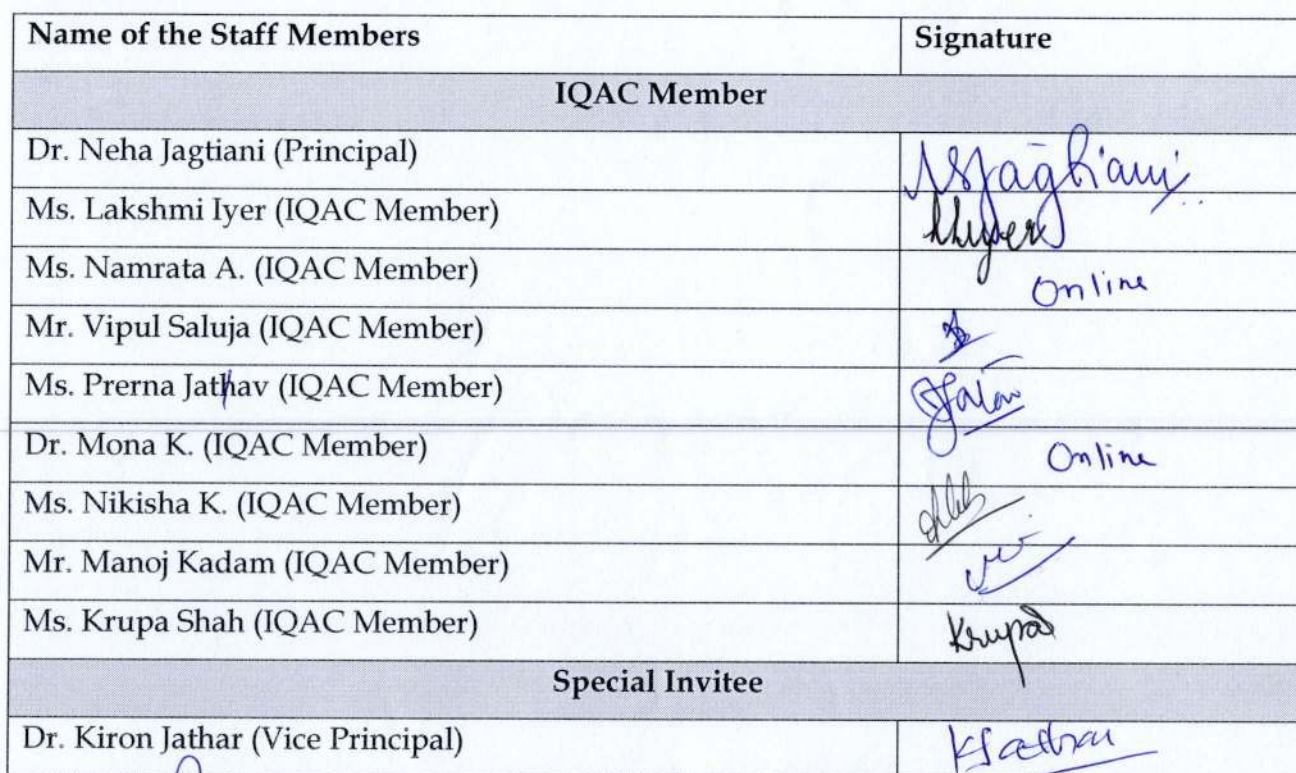 Name of the Staff Members Signature
IQAC Member
Dr. Neha Jagtiani (Principal) NSJagtiani
Ms. Lakshmi Iyer (IQAC Member)
Ms. Namrata A. (IQAC Member) Online
Mr. Vipul Saluja (IQAC Member)
Ms. Prerna Jathav (IQAC Member)
Dr. Mona K. (IQAC Member) Online
Ms. Nikisha K. (IQAC Member)
Mr. Manoj Kadam (IQAC Member)
Ms. Krupa Shah (IQAC Member) KrupaS
Special Invitee
Dr. Kiron Jathar (Vice Principal) KJathar